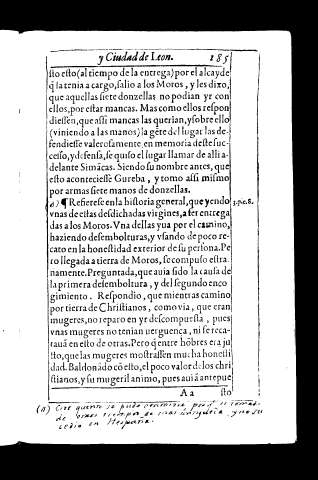 y Ciudad de Leon. 185
sto esto (al tiempo de la entrega) por el alcayde
q̃ la tenia a cargo, salio a los Moros, y les dixo,
que aquellas siete donzellas no podian yr con
ellos, por estar mancas. Mas como ellos respon
diessen, que assi mancas las querian, y sobre ello
(viniendo a las manos) la gẽte del lugar las de-
fendiesse valerosamente, en memoria deste suc-
cesso, y defensa, se quiso el lugar llamar de alli a-
delante Simãcas. Siendo su nombre antes, que
esto aconteciesse Gureba, y tomo assi mismo
por armas siete manos de donzellas.
a) ¶ Refierese en la historia general, que yendo 3.p.c.8.
vnas de estas desdichadas virgines, a ser entrega
das a los Moros. Vna dellas yua por el camino,
haziendo desembolturas, y vsando de poco re-
cato en la honestidad exterior de su persona. Pe
ro llegada a tierra de Moros, se compuso estra-
ñamente. Preguntada, que auia sido la causa de
la primera desemboltura, y del segundo enco
gimiento. Respondio, que mientras camino
por tierra de Christianos, como via, que eran
mugeres, no reparo en yr descompuesta, pues
vnas mugeres no tenian verguença, ni se reca-
tauã en esto de otras. Pero q̃ entre hõbres era ju
sto, que las mugeres mostrassen mucha honesti
dad. Baldonãdo cõ esto, el poco valor de los chri
stianos, y su mugeril animo, pues auiã antepue
A a sto
(a) Este quento se pudo
de
en Hespaña.